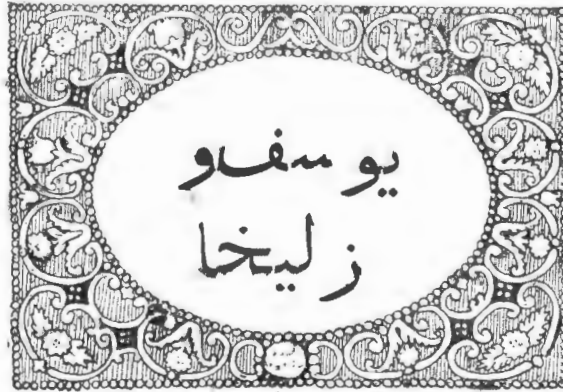 یوسف و
زلیخا